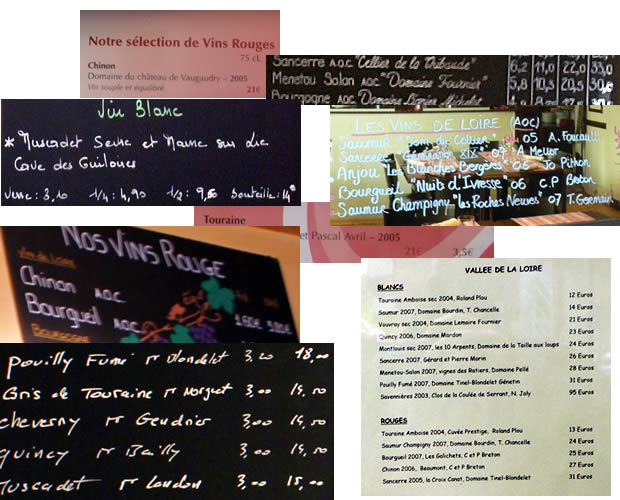 Notre sélection de Vins Rouges
75 cl.
Chinon
Domaine du château de Vaugaudry – 2005
Vin souple et équilibré
21€
Sancerre A.O.C "Cellier de la Thibaude" 6,2 11,0 22,0 33,0
Menetou Salon AOC "Domaine Fournier" 5,8 10,5 20,5 30,0
Bourgogne AOC "Domaine
Vin Blanc
* Muscadet Sèvre et Maine sur Lie
Cave des
verre : 3,10 1/4 : 4,90 1/2 : 9,50 bouteille : 14€
LES VINS DE LOIRE (AOC)
Saumur "Dom du Collier" 05 A. Foucault
Sancerre "Génération XIX" 07 A Mellot
Anjou "Les Blanches Bergères" 06 Jo Pithon
Bourgueil "Nuits d'Ivresse" 06 C.P Breton
Saumur Champigny "les Roches Neuves" 07 T. Germain
Touraine
et Pascal Avril – 2005
21€ 3,5€
NOS VINS ROUGE
Vin de Loire
Chinon AOC
Bourgueil AOC 1.60€
Pouilly Fumé Mr Blondelet 3,20 18,00
Gris de Touraine Mr Norguet 3,00 14,50
Cheverny Mr Gendrier 3,00 14,50
Quincy Mr Bailly 3,00 14,50
Muscadet Mr Landon 3,00 15,00
VALLEE DE LA LOIRE
BLANCS
Touraine Amboise sec 2004, Roland Plou 12 Euros
Saumur 2007, Domaine Bourdin, T. Chancelle 14 Euros
Vouvray sec 2004, Domaine Lemaire Fournier 21 Euros
Quincy 2006, Domaine Mardon 23 Euros
Montlouis sec 2007, les 10 Arpents, Domaine de la Taille aux loups 24 Euros
Sancerre 2007, Gérard et Pierre Morin 26 Euros
Menetou-Salon 2007, vignes des Ratiers, Domaine Pellé 28 Euros
Pouilly Fumé 2007, Domaine Tinel-Blondelet Génetin 31 Euros
Savennières 2003, Clos de la Coulée de Serrant, N. Joly 95 Euros
ROUGES
Touraine Amboise 2004, Cuvée Prestige, Roland Plou 13 Euros
Saumur Champigny 2007, Domaine Bourdin, T. Chancelle 24 Euros
Bourgueil 2007, Les Galichets, C et P Breton 25 Euros
Chinon 2006, Beaumont, C et P Breton 27 Euros
Sancerre 2005, la Croix Canat, Domaine Tinel-Blondelet 31 Euros